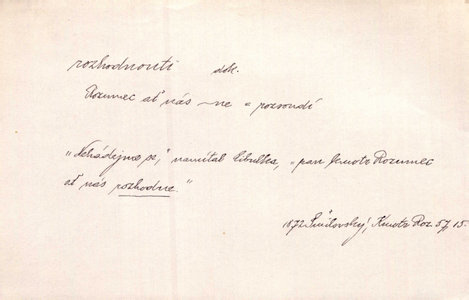 rozhodnouti dok.
Rozumec ať nás ~ne a posoudí
„Nehádejme se,“ namítal Cibulka, „pan kmotr Rozumec
ať nás rozhodne.“
1872 Šmilovský, Kmotr Roz. 57, 15.